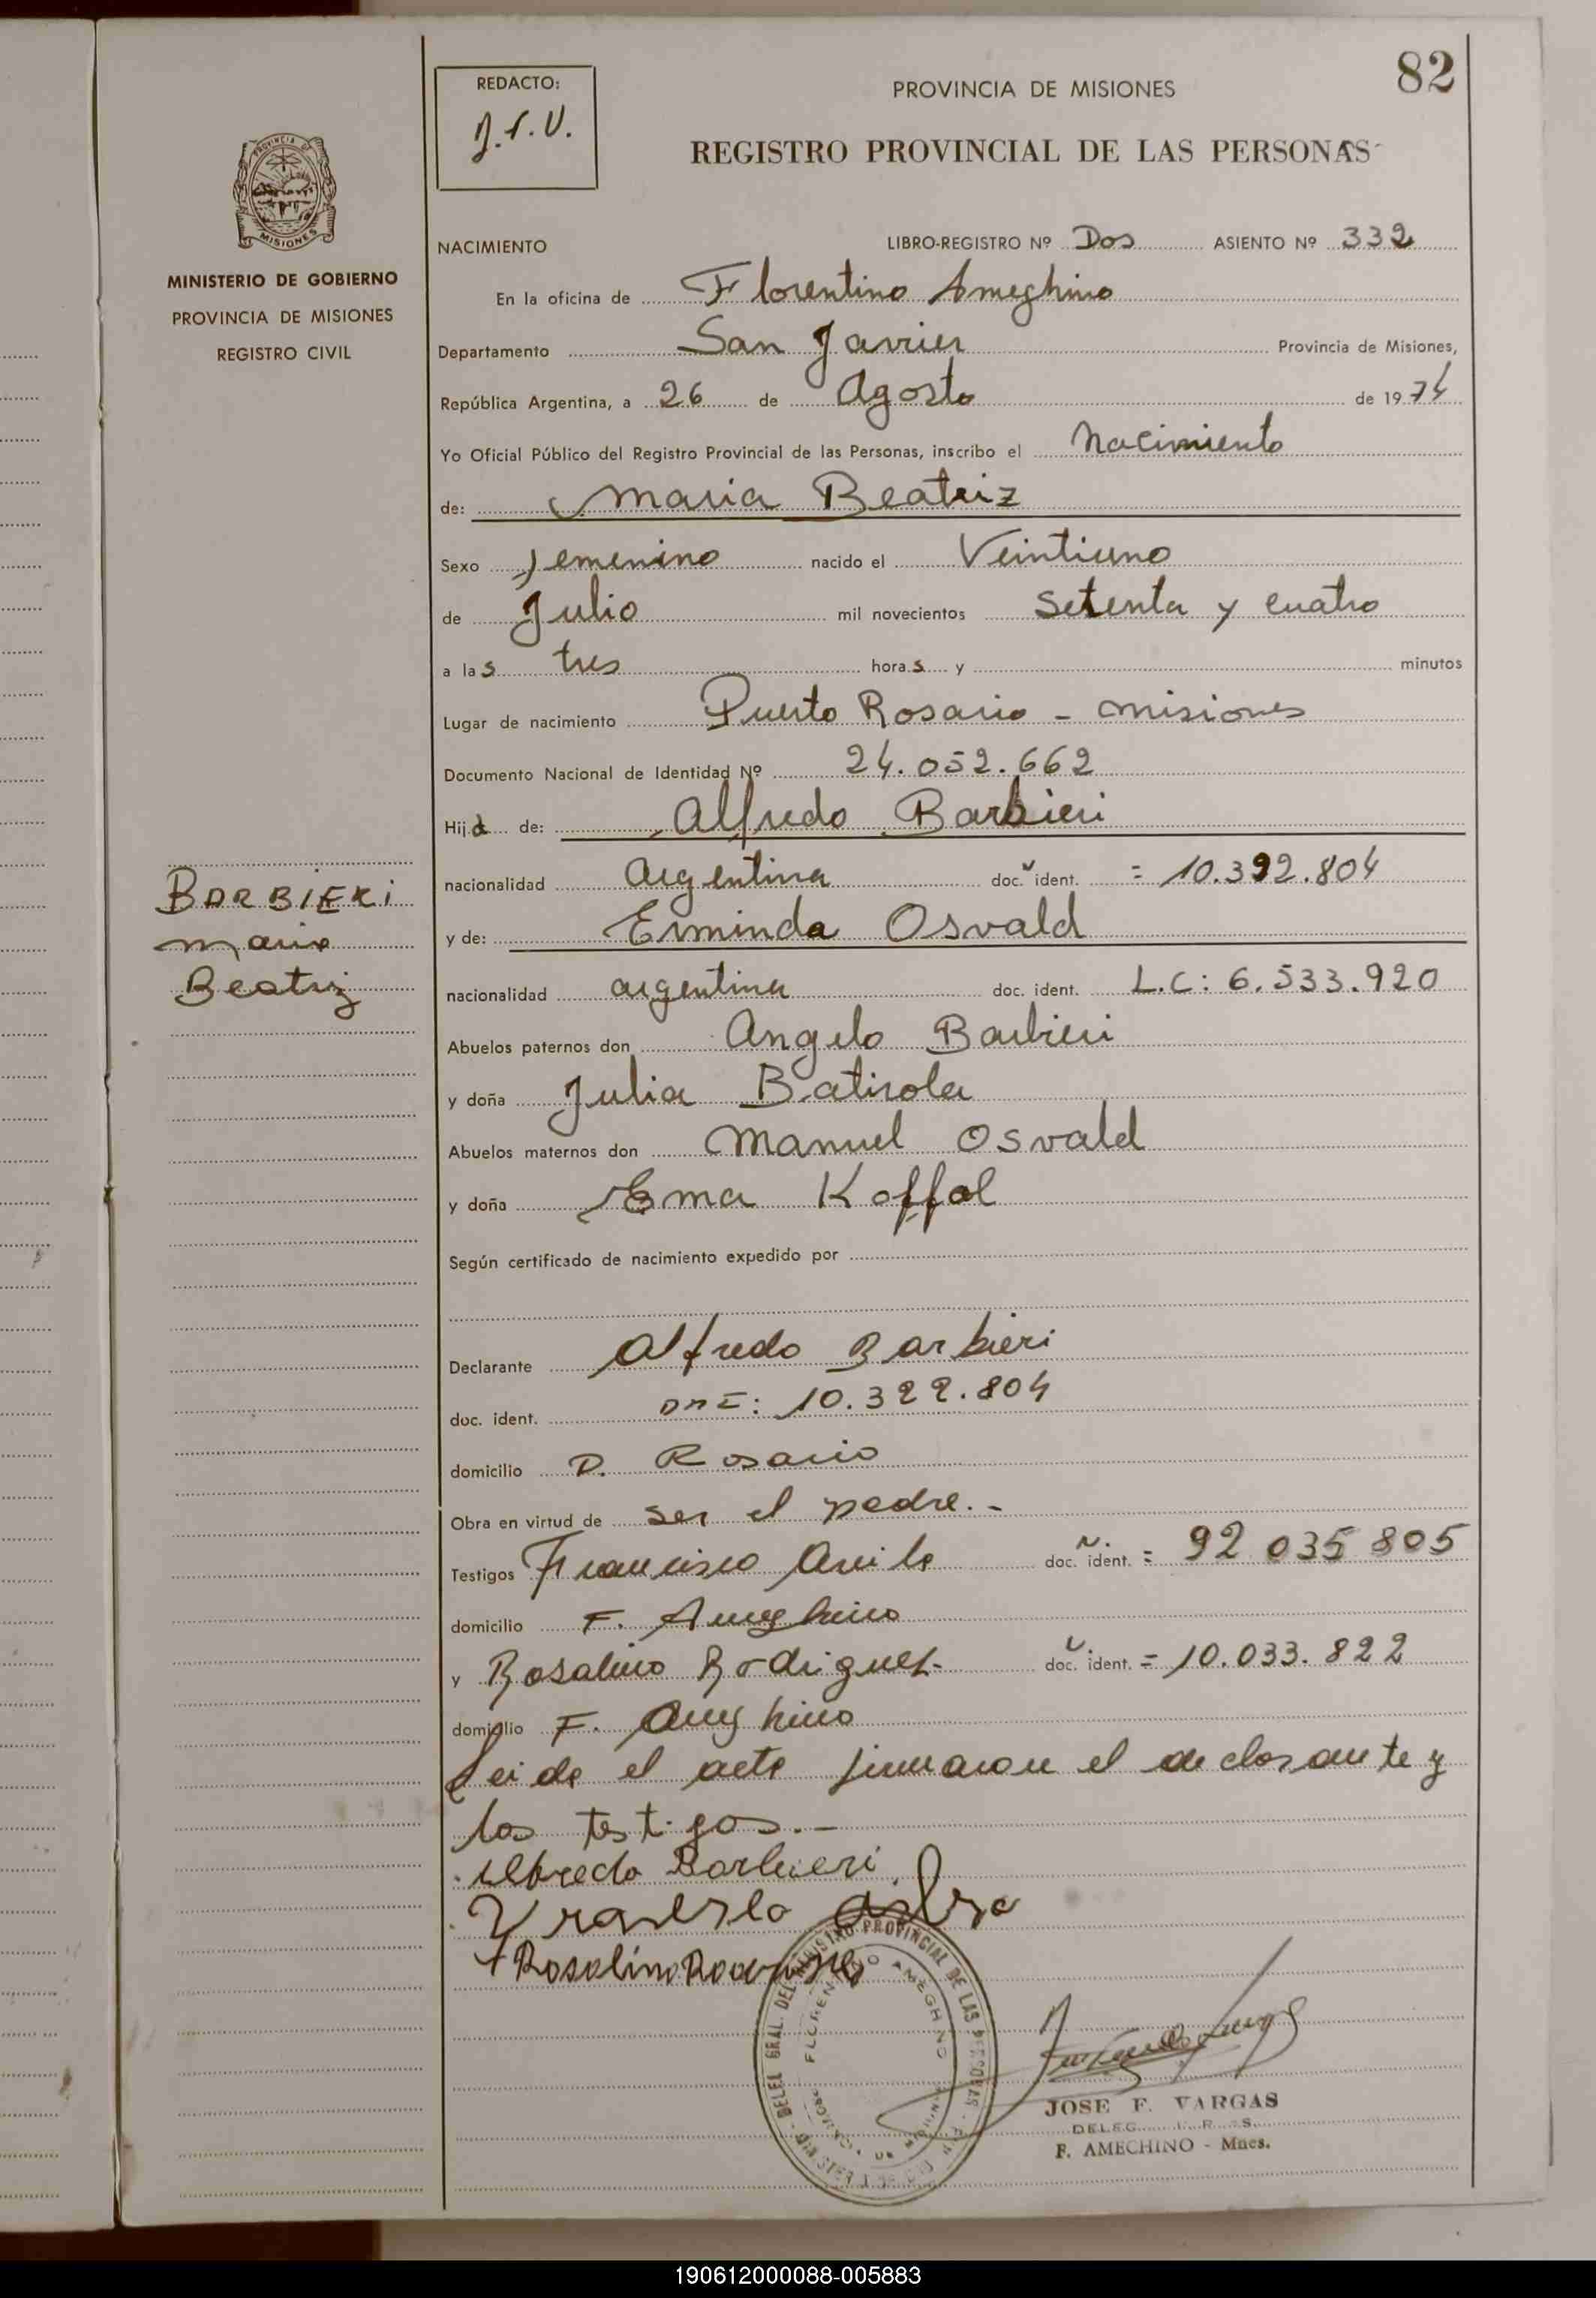 82
REDACTO:
J.F.V.
PROVINCIA DE MISIONES
REGISTRO PROVINCIAL DE LAS PERSONAS
PROVINCIA DE
MISIONES
MINISTERIO DE GOBIERNO
PROVINCIA DE MISIONES
REGISTRO CIVIL
NACIMIENTO LIBRO-REGISTRO Nº Dos ASIENTO Nº 332
En la oficina de Florentino Ameghino
Departamento San Javier Provincia de Misiones,
República Argentina, a 26 de Agosto de 1974
Yo Oficial Público del Registro Provincial de las Personas, inscribo el Nacimiento
de: Maria Beatriz
Sexo femenino nacido el Veintiuno
de Julio mil novecientos setenta y cuatro
a las tres horas y minutos
Lugar de nacimiento Puerto Rosario - Misiones
Documento Nacional de Identidad Nº 24.052.662
Hija de: Alfredo Barbieri
nacionalidad Argentina doc. ident. = 10.392.804
BARBIERI
Maria
Beatriz
y de: Erminda Osvald
nacionalidad argentina doc. ident. L.C: 6.533.920
Abuelos paternos don Angelo Barbieri
y doña Julia Batirola
Abuelos maternos don Manuel Osvald
y doña Ema Koffal
Según certificado de nacimiento expedido por
Declarante Alfredo Barbieri
doc. ident. DNI: 10.322.804
domicilio P. Rosario
Obra en virtud de ser el padre.-
Testigos Francisco Avila doc. ident. = 92 035 805
domicilio F. Ameghino
y Rosalino Rodriguez doc. ident. = 10.033.822
domicilio F. Ameghino
Leida el acta firmaron el declarante y
los testigos.-
Alfredo Barbieri
Rosalino Rodriguez
REGISTRO PROVINCIAL DE LAS PERSONAS
FLORENTINO AMEGHINO
JOSE F. VARGAS
F. AMECHINO - Mnes.
190612000088-005883